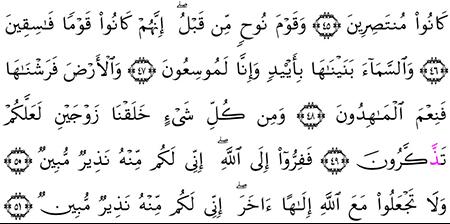 كَانُوا۟ مُنتَصِرِينَ ۝٤٥ وَقَوْمَ نُوحٍ مِّن قَبْلُ ۖ إِنَّهُمْ كَانُوا۟ قَوْمًا فَـٰسِقِينَ
۝٤٦ وَٱلسَّمَآءَ بَنَيْنَـٰهَا بِأَيْي۟دٍ وَإِنَّا لَمُوسِعُونَ ۝٤٧ وَٱلْأَرْضَ فَرَشْنَـٰهَا
فَنِعْمَ ٱلْمَـٰهِدُونَ ۝٤٨ وَمِن كُلِّ شَىْءٍ خَلَقْنَا زَوْجَيْنِ لَعَلَّكُمْ
تَذَكَّرُونَ ۝٤٩ فَفِرُّوٓا۟ إِلَى ٱللَّهِ ۖ إِنِّى لَكُم مِّنْهُ نَذِيرٌ مُّبِينٌ ۝٥٠
وَلَا تَجْعَلُوا۟ مَعَ ٱللَّهِ إِلَـٰهًا ءَاخَرَ ۖ إِنِّى لَكُم مِّنْهُ نَذِيرٌ مُّبِينٌ ۝٥١